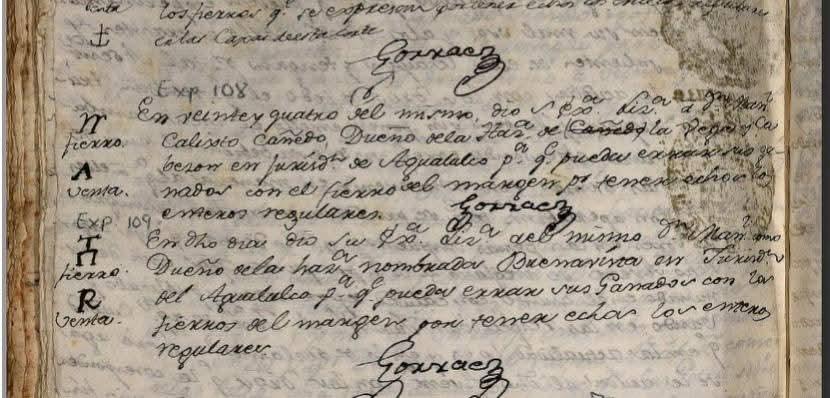 los fierros qe. se expresan por tener
en las Caxas de esta Corte
Gorraez
Exp 108
En veinte y quatro del mismo, dio S Exa. Liza. a Dn Manl.
Calixto Cañedo, Dueño de la Haza. de Cañedo la Vega y Ca
fierro.
bezon en Jurisdn. de Agualulco pa. qe. pueda errar sus ga-
venta.
nados con el fierro del margen pr. tener echos los
enteros regulares. Gorraez
Exp 109
En dho dia dio su Exa. Liza. al mismo Dn Manl. como
fierro.
Dueño de la haza. nombrada Buenavista en Jurisdn.
R
del Agualulco pa. qe. pueda errar sus Ganados con los
venta.
fierros del margen por tener echos los enteros
regulares.
Gorraez